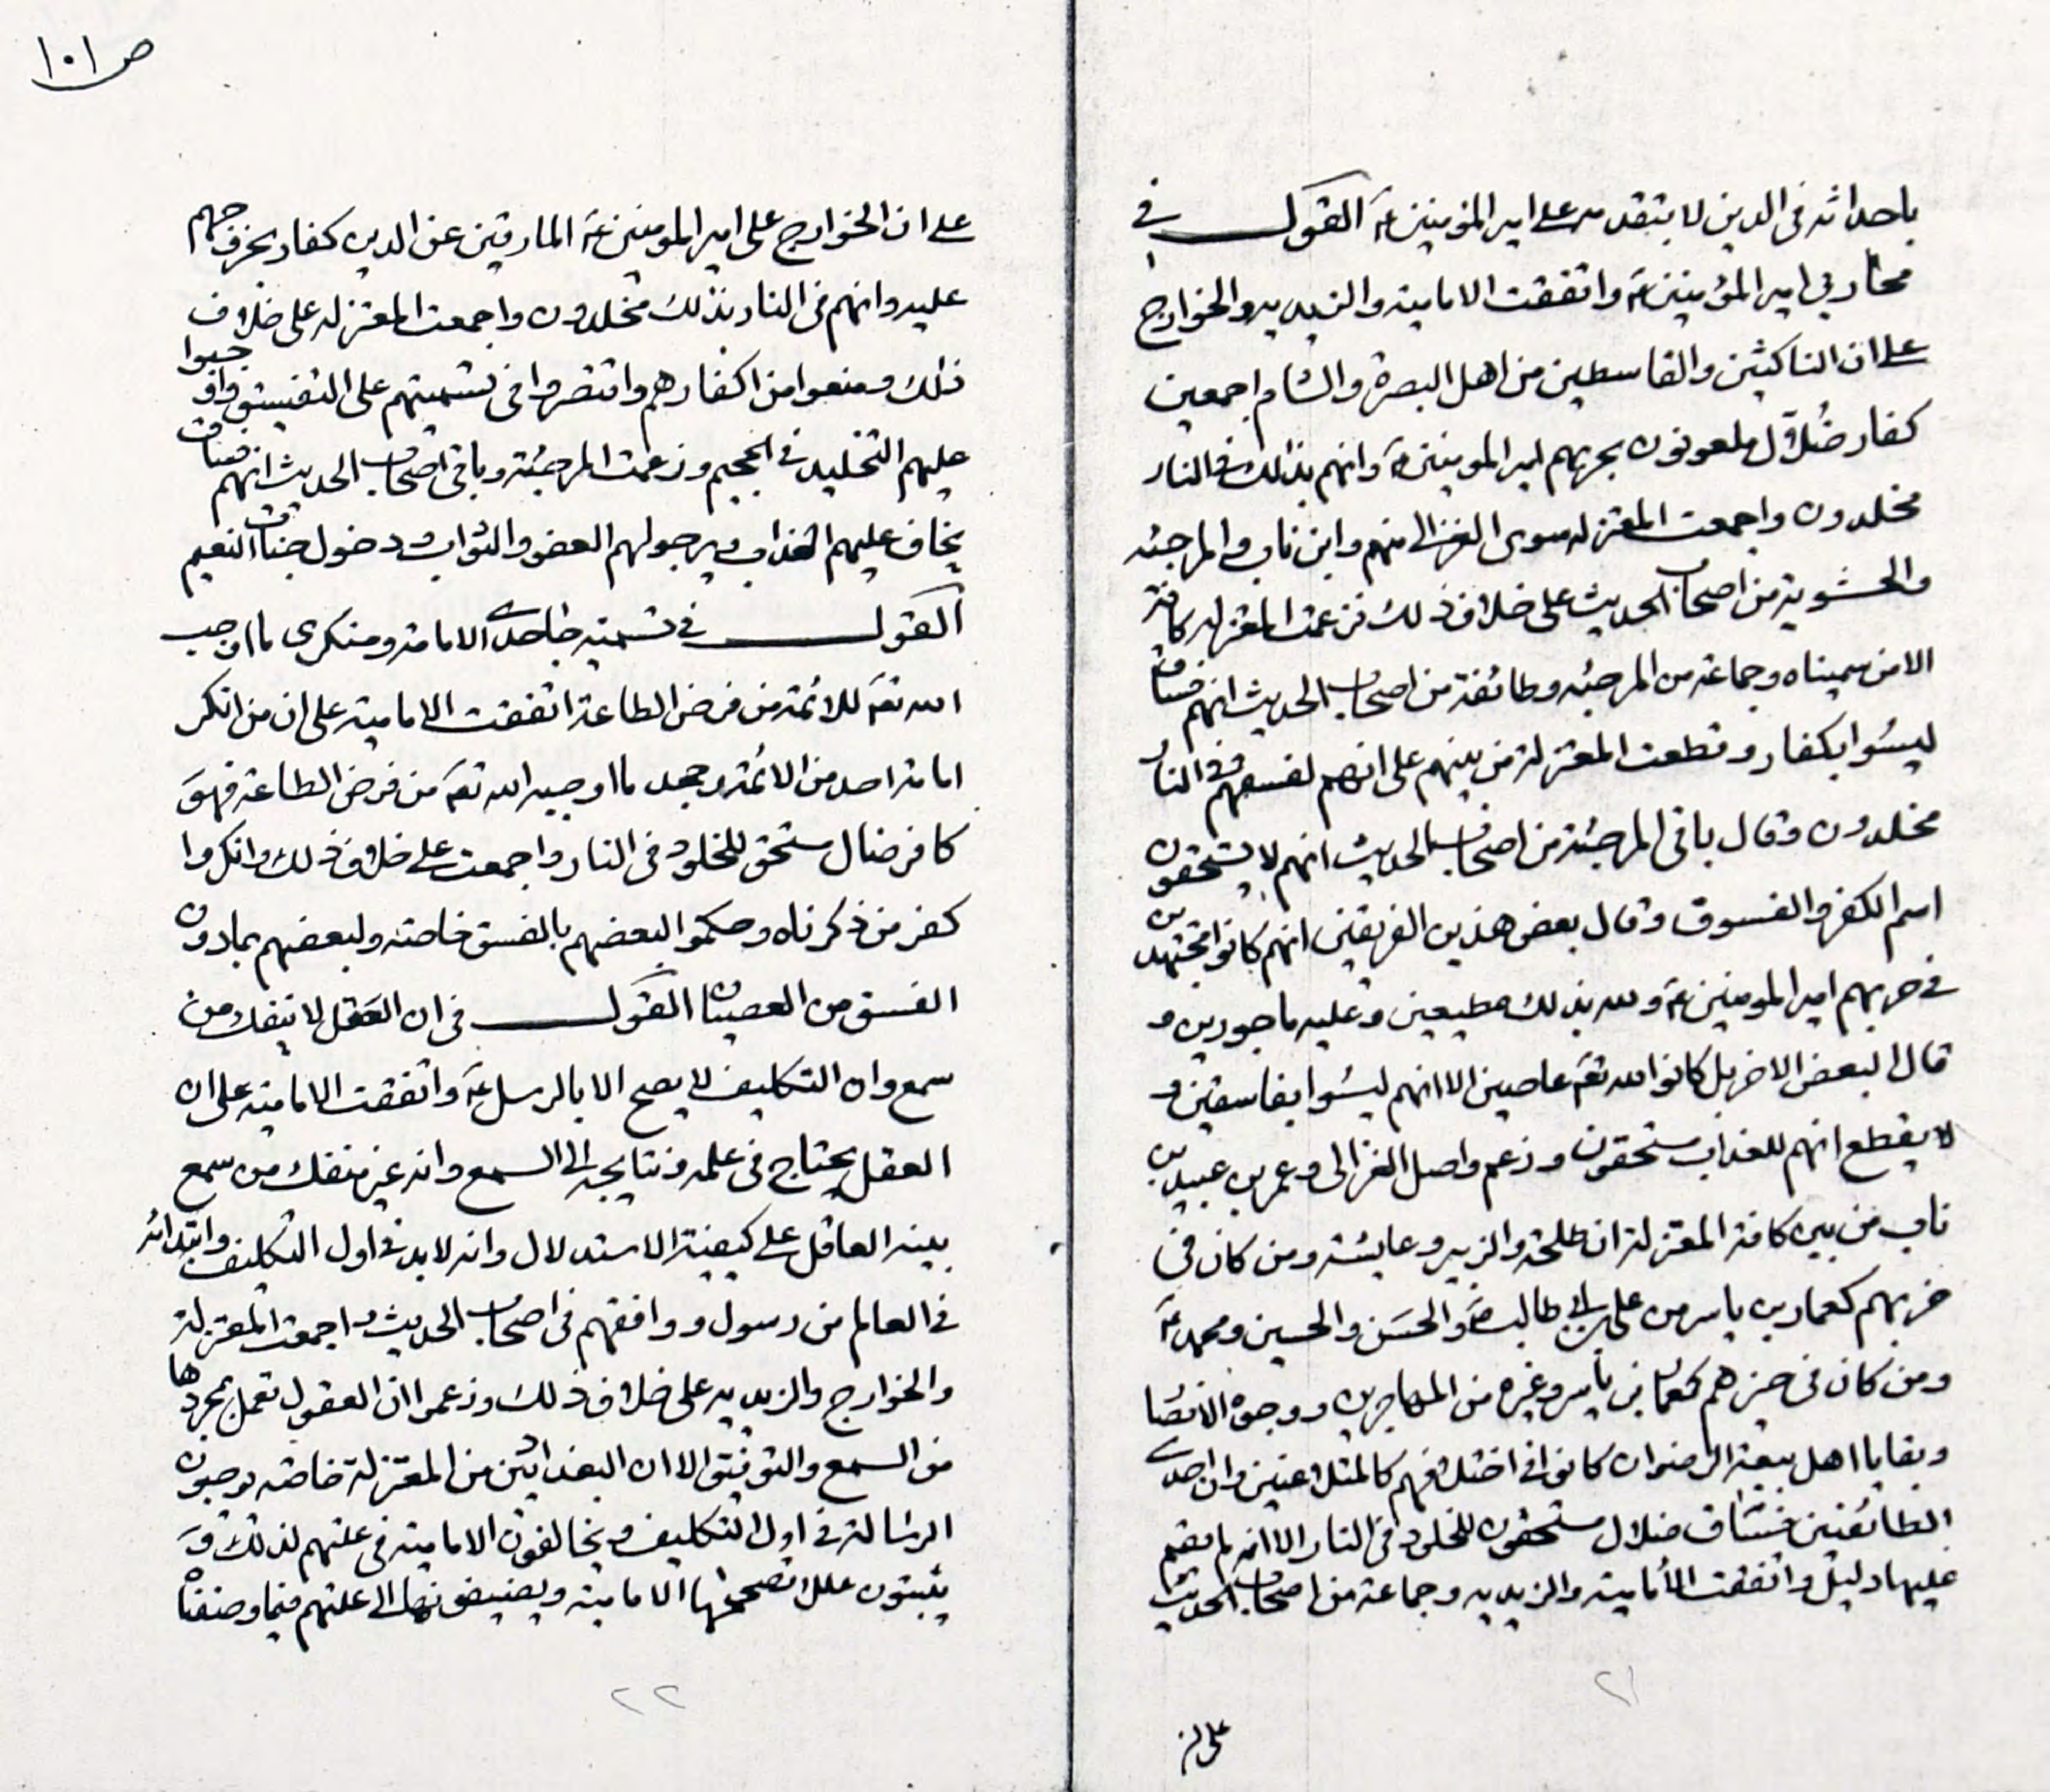 باحداثه فى الدين لا بتقدمه على امير المؤمنين ع القول فى
محاربي امير المؤمنين ع واتفقت الامامية والزيديه والخوارج
على ان الناكثين والقاسطين من اهل البصرة والشام اجمعين
كفار ضُلاّل ملعونون بحربهم امير المومنين ع وانهم بذلك فى النار
مخلدون واجمعت المعتزله سوى الغزالى منهم وابن ناب والمرجئه
والحشوية من اصحاب الحديث على خلاف ذلك فزعمت المعتزله كافة
الا من سميناه وجماعة من المرجئه وطائفة من اصحاب الحديث انهم فساق
ليسُوا بكفار وقطعت المعتزلة من بينهم على انهم لفسقهم فى النار
مخلدون وقال باقى المرجئة من اصحاب الحديث انهم لا يستحقون
اسم الكفر والفسوق وقال بعض هذين الفريقين انهم كانوا مجتهدين
فى حربهم امير المومنين ع ولله بذلك مطيعين وعليه ماجورين و
قال البعض الاخر بل كانوا لله تع عاصين الا انهم ليسُوا بفاسقين و
لا يقطع انهم للعذاب مستحقون وزعم واصل الغزالى وعمر بن عبيد بن
ناب من بين كافة المعتزلة ان طلحة والزبير وعايشه ومن كان فى
حربهم كعمار بن ياسر من على بن ابى طالب ع والحسَن والحسين ومحمد ع
ومن كان فى حيزهم كعمار بن ياسر وغيره من المهاجرين ووجوه الانصَا
وبقايا اهل بيعة الرضوان كانوا فى اختلافهم كالمتلاعنين وان احدى
الطائفتين فساق ضلال مستحقون للخلود فى النار الا انه لم يقم
عليها دليل واتفقت الأمامية والزيديه وجماعة من اصحاب الحديث
٢١
على ان
ص ١٠١
على ان الخوارج على امير المومنين ع المارقين عن الدين كفار بخروجهم
عليه وانهم فى النار بذلك مخلدون واجمعت المعتزله على خلاف
ذلك ومنعوا من اكفارهم واقتصروا فى تسميتهم على التفسيق واوجبوا
عليهم التخليد فى الجحيم وزعمت المرجئة وباقى اصحاب الحديث انهم فساق
يخاف عليهم العذاب ويرجو لهم العفو والثواب ودخول جنات النعيم
القول فى تسمية جاحدى الامامة ومنكرى ما اوجب
الله تع للائمة من فرض الطاعة اتفقت الامامية على ان من انكر
امامة احد من الائمة وجحد ما اوجبه الله تع من فرض الطاعة فهوَ
كافر ضال مستحق للخلود فى النار واجمعت على خلاف ذلك وانكروا
كفر من ذكرناه وحكموا لبعضهم بالفسق خاصة ولبعضهم بما دون
الفسق من العصيان القول فى ان العَقل لا ينفك من
سمع وان التكليف لا يصح الا بالرسل ع واتفقت الامامية على ان
العقل يحتاج فى علمه ونتايجه الى السمع وانه غير منفك من سمع
ينبه العاقل على كيفية الاستدلال وانه لابد فى اول التكليف وابتدائه
فى العالم من رسول ووافقهم فى اصحاب الحديث واجمعت المعتزلة
والخوارج والزيديه على خلاف ذلك وزعموا ان العقول تعمل بمجردها
من السمع والتوفيق الا ان البغداديين من المعتزلة خاصة يوجبون
الرسَالة فى اول التكليف ويخالفون الامامية فى علتهم لذلك وَ
يثبتون عللا تصححها الامامية ويضيفونها الى علتهم فيما وصفناه
٢٢